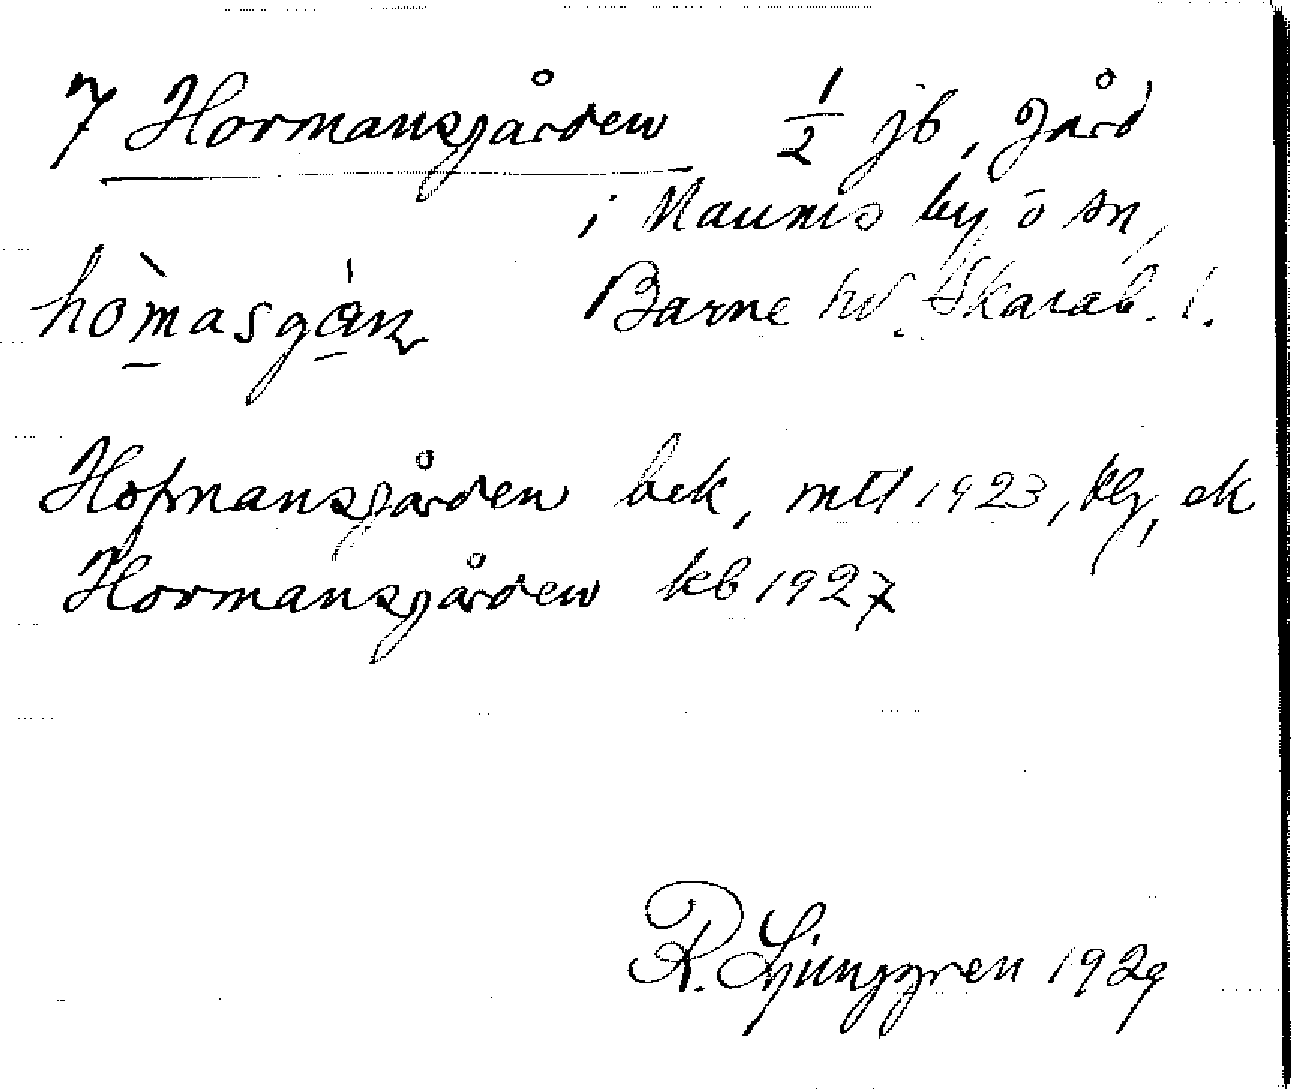 7 Hormansgården ½ jb, gård
i Naums by o sn,
Barne hd. Skarab. l.
hòmasgán
Hofmansgården bek, mtl 1923, klg, ek
Hormansgården kb 1927
R. Ljunggren 1929